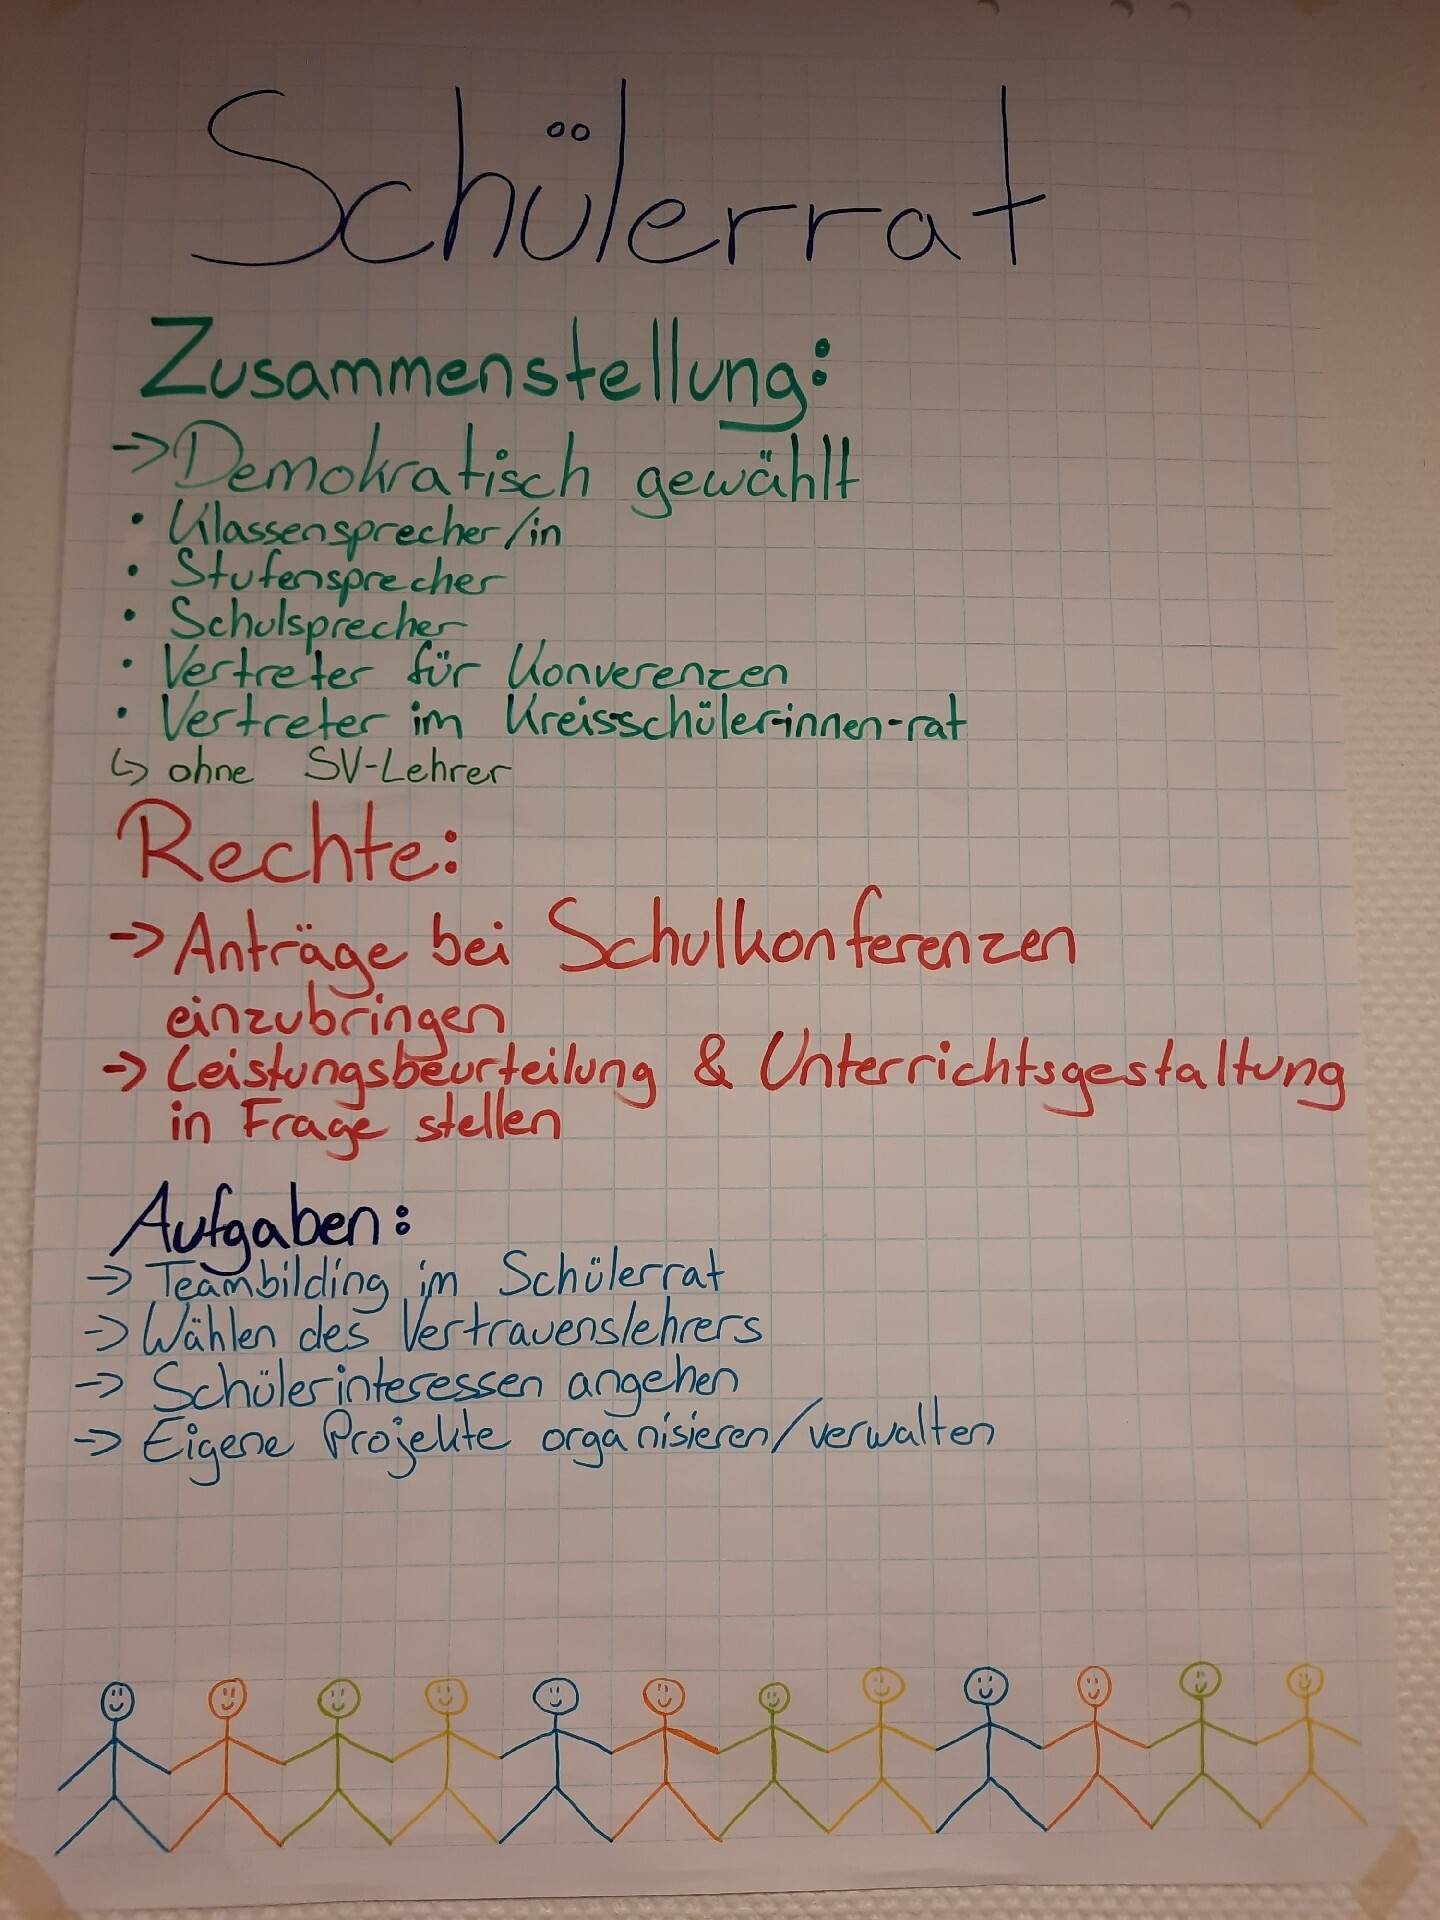 Schülerrat
Zusammenstellung:
-> Demokratisch gewählt
• Klassensprecher/in
• Stufensprecher
• Schulsprecher
• Vertreter für Konverenzen
• Vertreter im Kreisschüler-innen-rat
↳ ohne SV-Lehrer
Rechte:
-> Anträge bei Schulkonferenzen
einzubringen
-> Leistungsbeurteilung & Unterrichtsgestaltung
in Frage stellen
Aufgaben:
-> Teambilding im Schülerrat
-> Wählen des Vertrauenslehrers
-> Schülerinteressen angehen
-> Eigene Projekte organisieren/verwalten